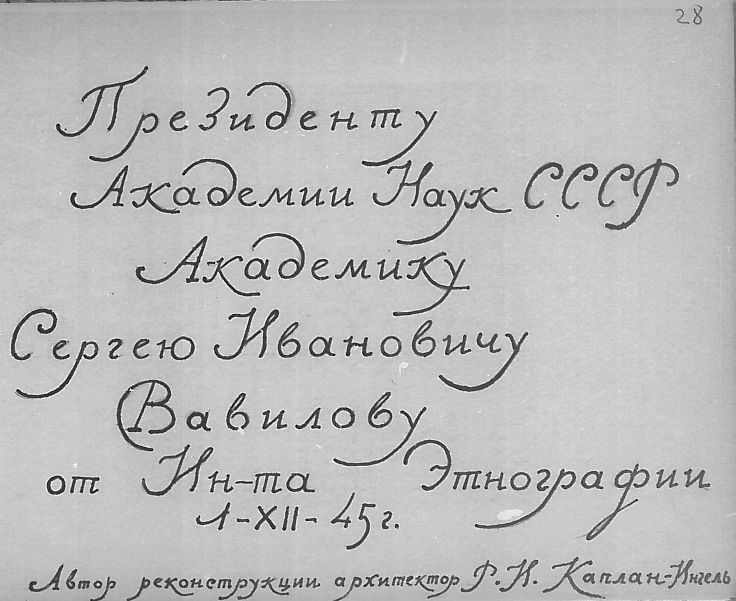 28
Президенту
Академии Наук СССР
Академику
Сергею Ивановичу
Вавилову
от Ин-та Этнографии
1-XII-45г.
Автор реконструкции архитектор Р. И. Каплан-Ингель